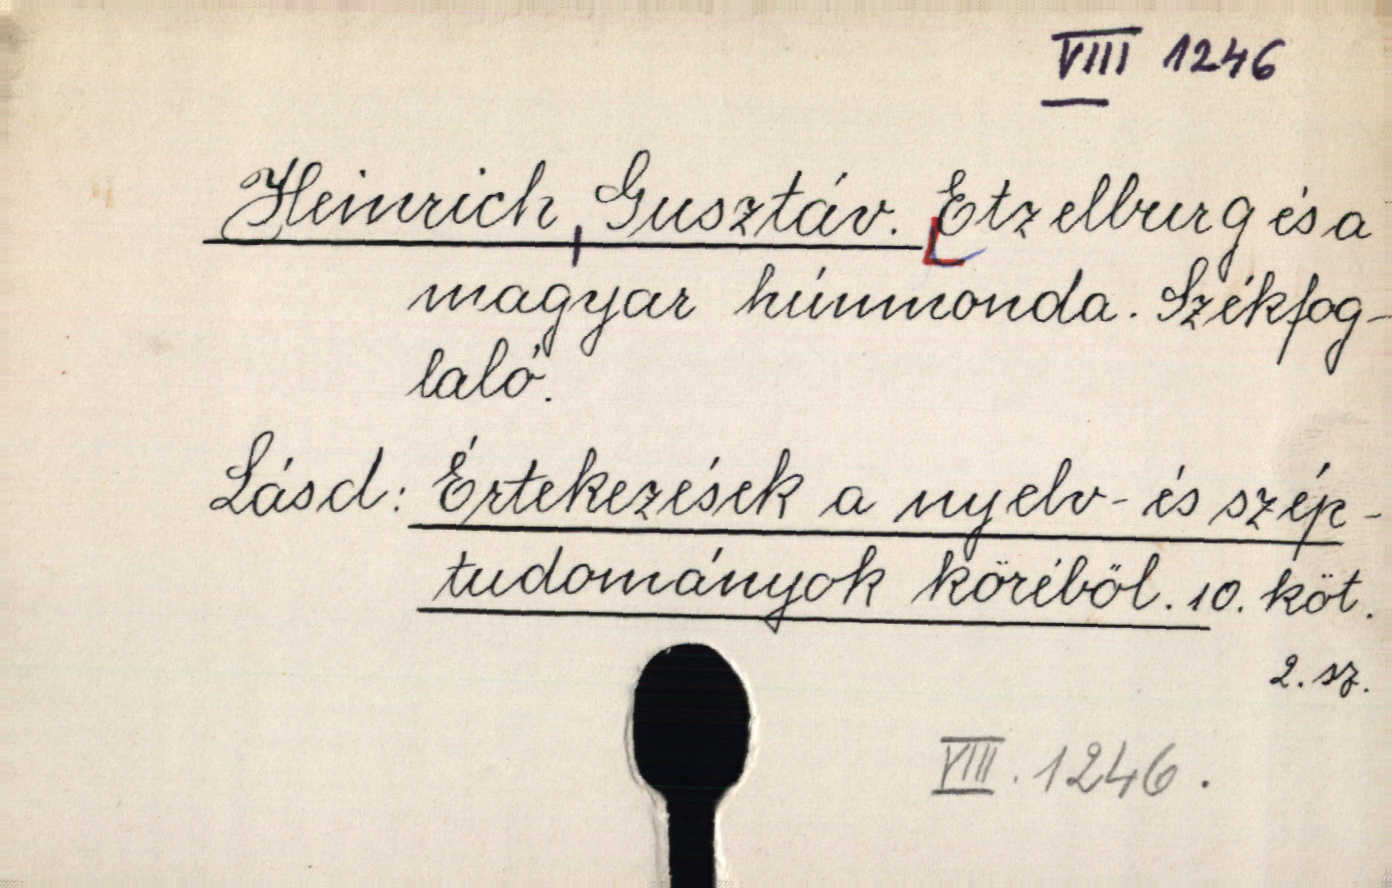 VIII 1246
Heinrich, Gusztáv. Etzelburg és a
magyar húnmonda. Székfog-
laló.
Lásd: Értekezések a nyelv- és szép-
tudományok köréböl. 10. köt.
2. sz.
VIII. 1246.